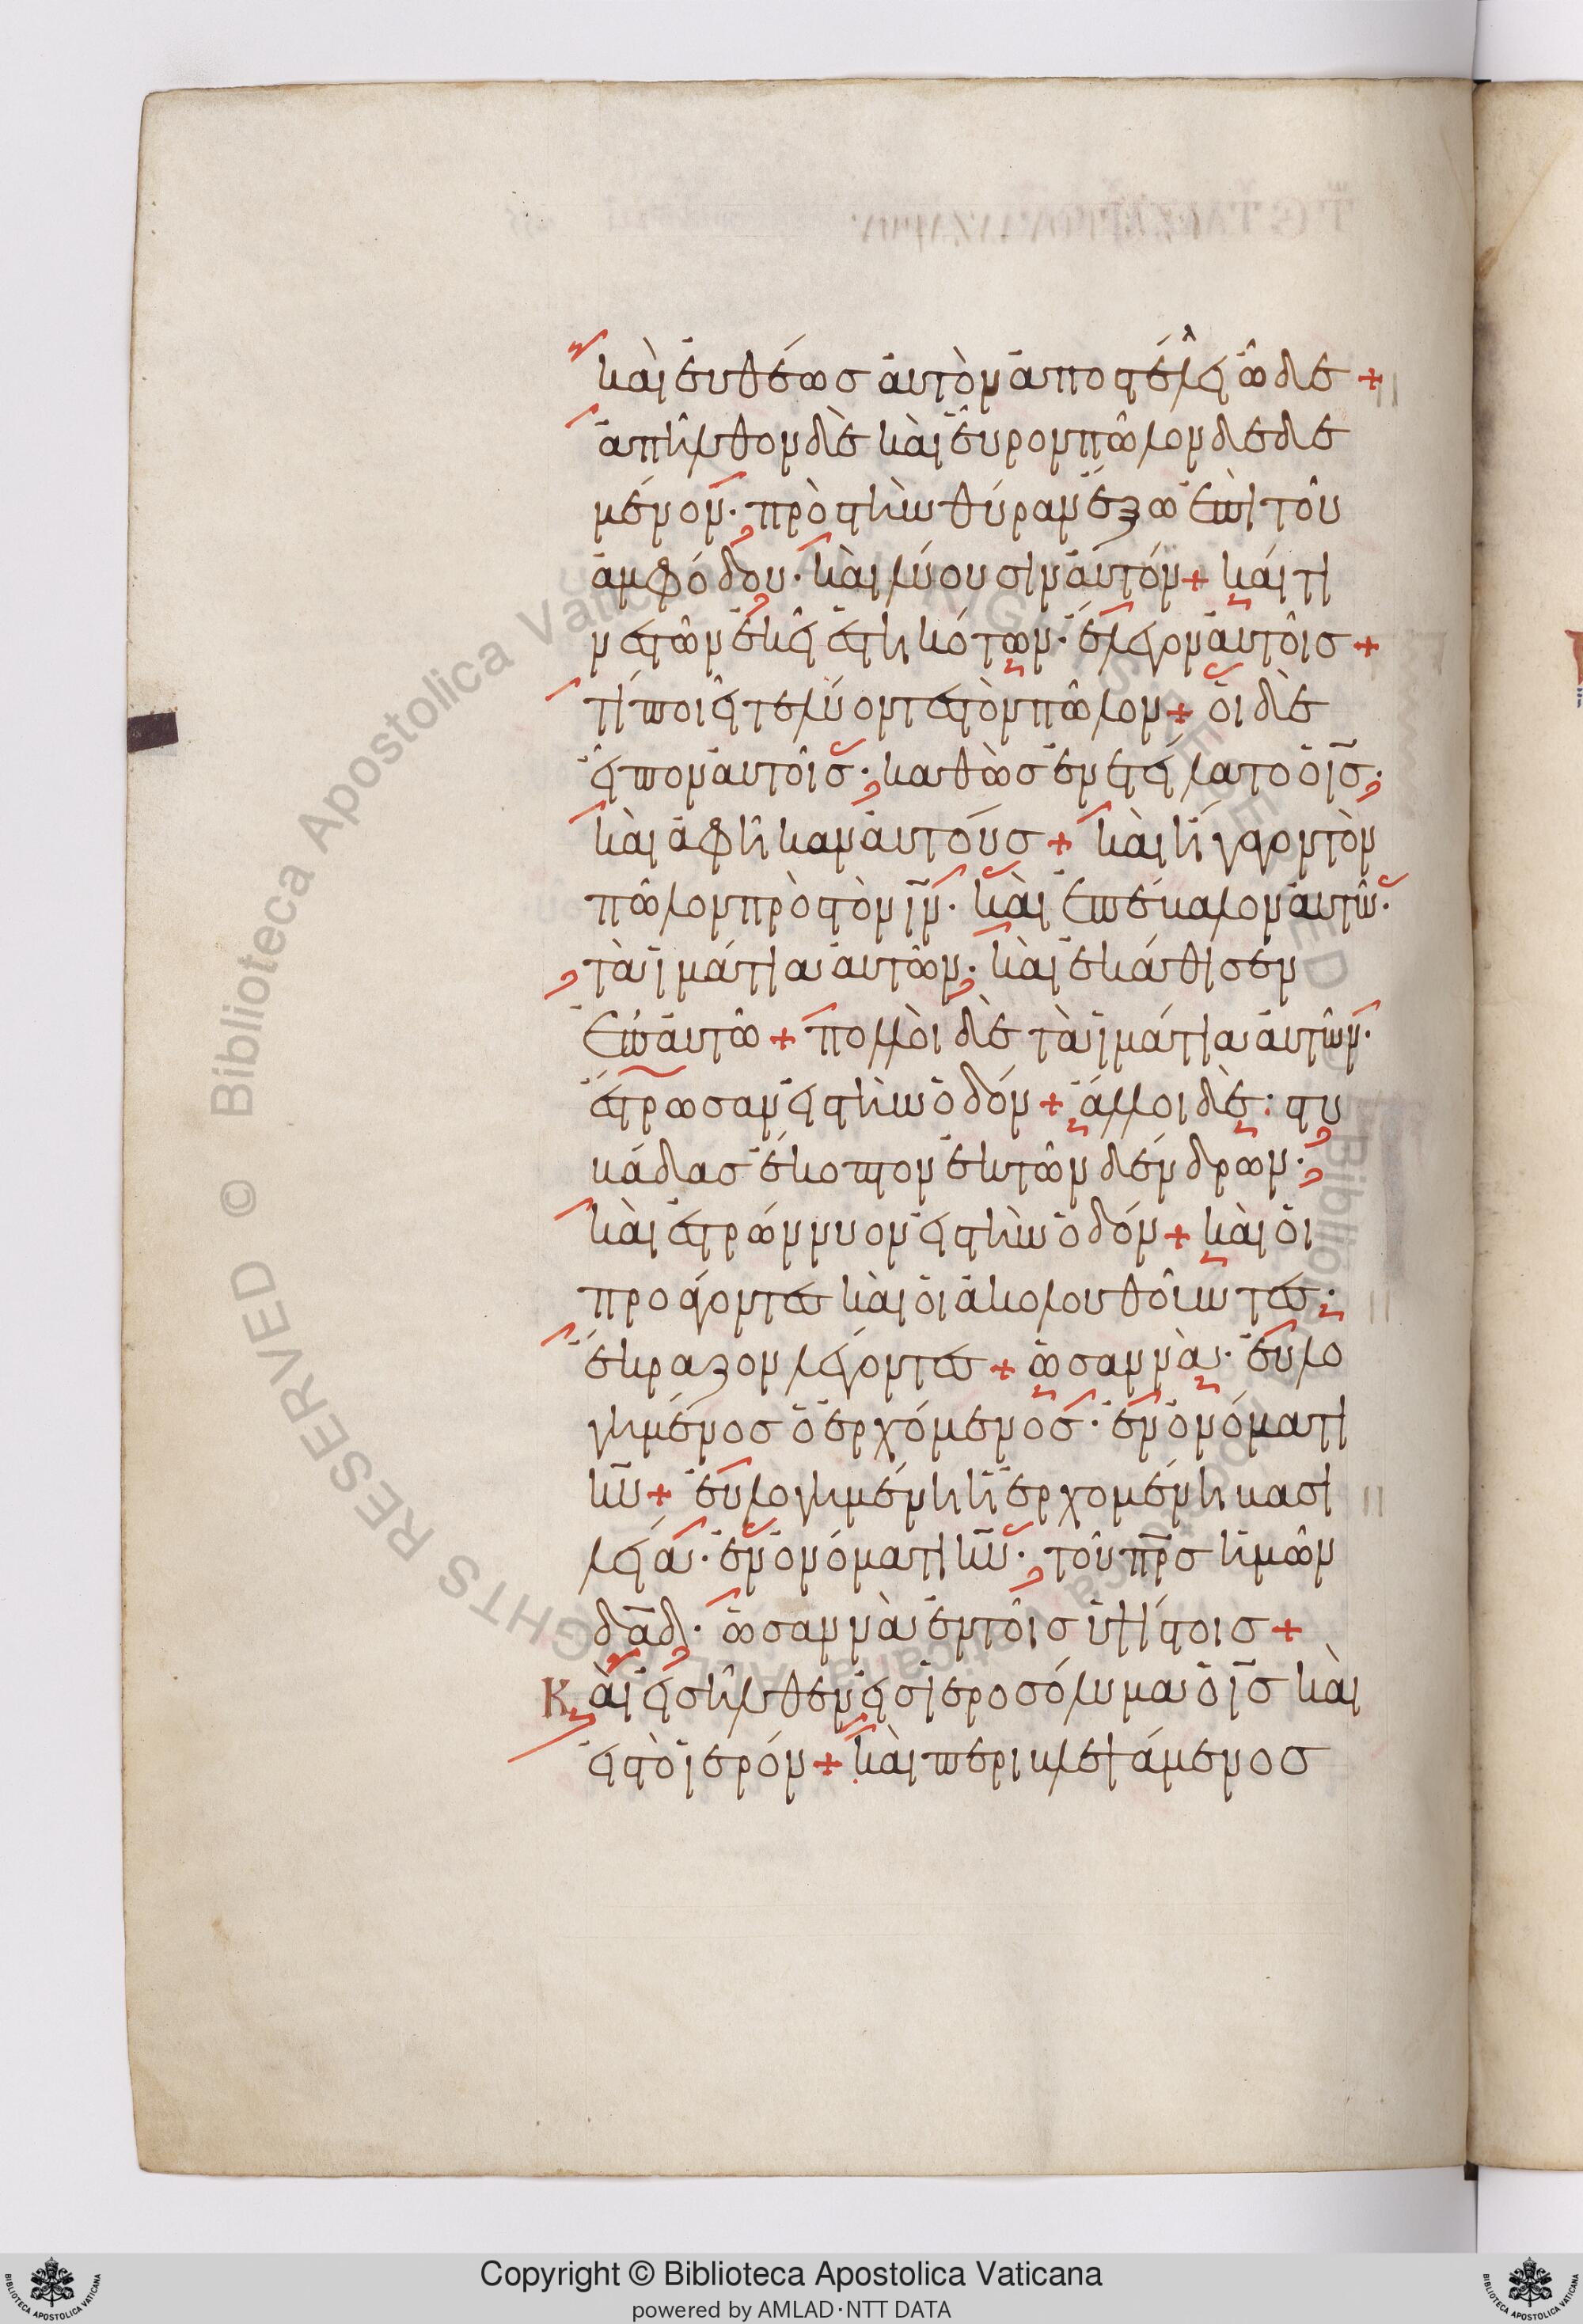 και ευθέωσ αυτὸν αποστέλλει ῶδε +
απῆλθον δὲ καὶ εῦρον πῶλον δεδε
μένον· πρὸσ τὴν θύραν έξω επὶ τοῦ
αμφόδου· καὶ λύουσιν αυτόν + καί τι
νεσ τῶν εκεῖ εστηκότων· έλεγον αυτοῖσ +
τί ποιεῖτε λύοντεσ τὸν πῶλον + οι δὲ
εῖπον αυτοῖσ· καθὼσ ενετείλατο ο ισ·
καὶ αφῆκαν αυτούσ + καὶ ήγαγον τὸν
πῶλον πρὸσ τὸν ιν· καὶ επέβαλον αυτῶ·
τὰ ιμάτια αυτῶν· καὶ εκάθισεν
επ' αυτῶ + πολλοὶ δὲ τὰ ιμάτια αυτῶν·
έστρωσαν εισ τὴν οδόν + άλλοι δὲ· στυ
βάδασ έκοπτον εκ τῶν δένδρων·
καὶ εστρώννυον εισ τὴν οδόν + καὶ οι
προάγοντεσ καὶ οι ακολουθοῦντεσ·
έκραζον λέγοντεσ + ωσαννὰ· ευλο
γημένοσ ο ερχόμενοσ· εν ονόματι
κυ + ευλογημένη η ερχομένη βασι
λεία· εν ονόματι κυ· τοῦ πρσ ημῶν
δαδ· ωσαννὰ εν τοῖσ υψίστοισ +
Καὶ εισῆλθεν εισ ιεροσόλυμα ο ισ καὶ
εισ τὸ ιερόν + καὶ περιβλεψάμενοσ
Copyright © Biblioteca Apostolica Vaticana
powered by AMLAD·NTT DATA